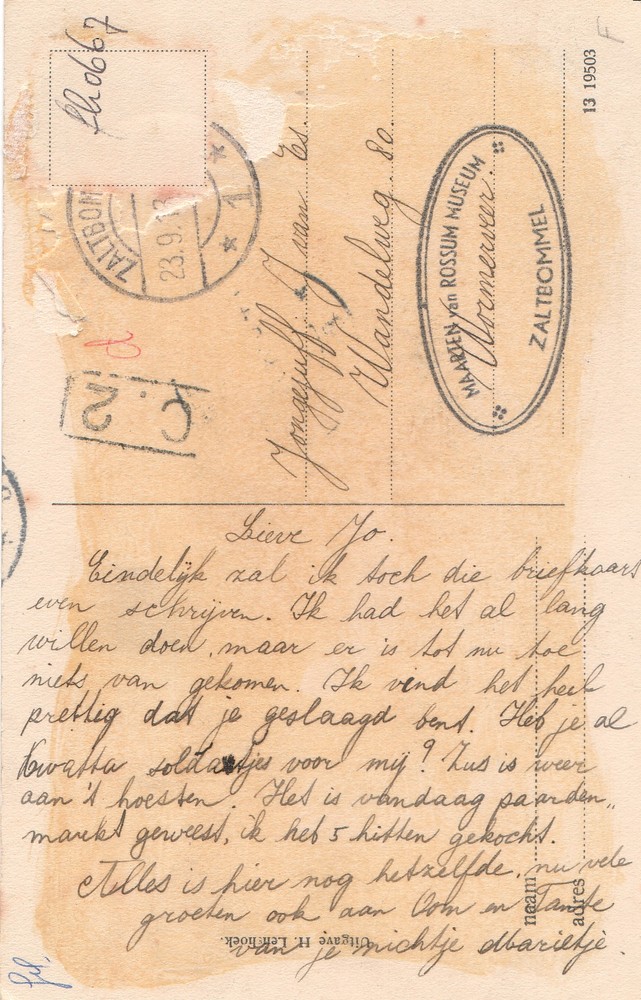 fh0667
13 19503
F
ZALTBOM
23.9.13
1
Jongejuff. J van Es.
Wandelweg. 80.
Wormerveer.
MAARTEN van ROSSUM MUSEUM
ZALTBOMMEL
C.2
Lieve Jo.
Eindelijk zal ik toch die briefkaart
even schrijven. Ik had het al lang
willen doen, maar er is tot nu toe
niets van gekomen. Ik vind het heel
prettig dat je geslaagd bent. Heb je al
Kwatta soldaatjes voor mij? Zus is weer
aan 't hoesten. Het is vandaag paarden„
markt geweest, ik heb 5 hitten gekocht.
Alles is hier nog hetzelfde, nu vele
groeten ook aan Oom en Tante
van je nichtje
naam
adres
Uitgave H. Lenshoek.